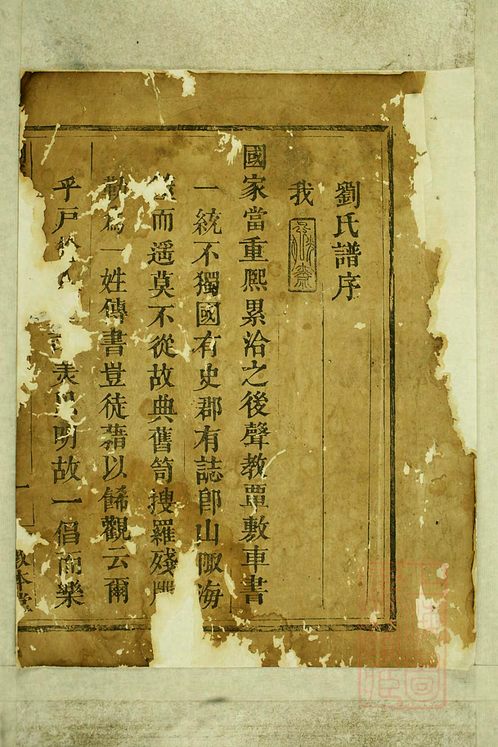 劉氏譜序
我
國家當重熙累洽之後聲教覃敷車書
一統不獨國有史郡有誌卽山陬海
而遥莫不從故典舊笥搜羅殘
為一姓傳書豈徒藉以餙觀云爾
乎戶 表 明故一倡而樂
本堂